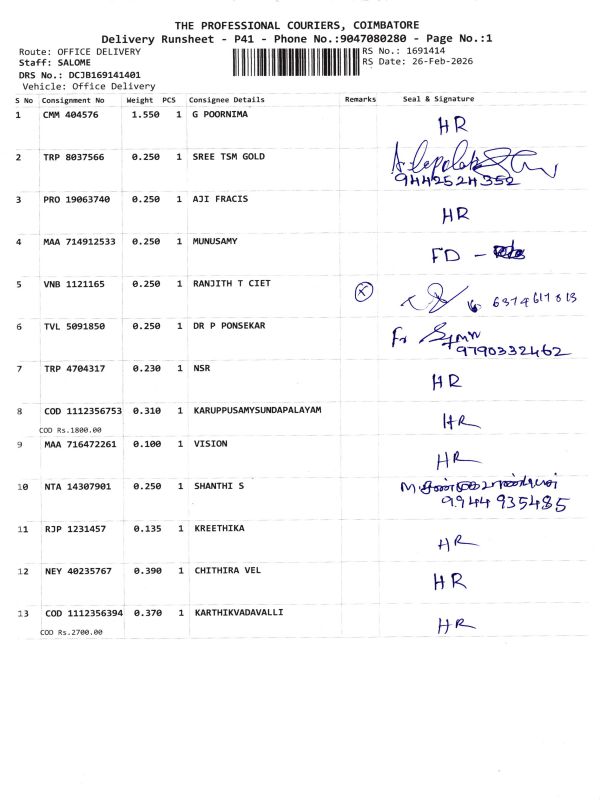 THE PROFESSIONAL COURIERS, COIMBATORE
Delivery Runsheet - P41 - Phone No.:9047080280 - Page No.:1
Route: OFFICE DELIVERY RS No.: 1691414
Staff: SALOME RS Date: 26-Feb-2026
DRS No.: DCJB169141401
Vehicle: Office Delivery
S No Consignment No Weight PCS Consignee Details Remarks Seal & Signature
1 CMM 404576 1.550 1 G POORNIMA HR
2 TRP 8037566 0.250 1 SREE TSM GOLD
9442524352
3 PRO 19063740 0.250 1 AJI FRACIS HR
4 MAA 714912533 0.250 1 MUNUSAMY FD -
5 VNB 1121165 0.250 1 RANJITH T CIET X 6374617813
6 TVL 5091850 0.250 1 DR P PONSEKAR
9790332462
7 TRP 4704317 0.230 1 NSR HR
8 COD 1112356753 0.310 1 KARUPPUSAMYSUNDAPALAYAM HR
COD Rs.1800.00
9 MAA 716472261 0.100 1 VISION HR
10 NTA 14307901 0.250 1 SHANTHI S
9944 935485
11 RJP 1231457 0.135 1 KREETHIKA HR
12 NEY 40235767 0.390 1 CHITHIRA VEL HR
13 COD 1112356394 0.370 1 KARTHIKVADAVALLI HR
COD Rs.2700.00